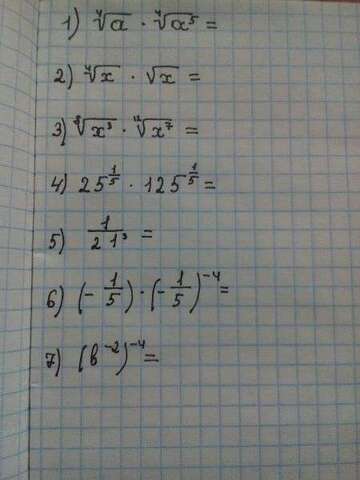 1) ⁴√a · ⁴√a⁵ =
2) ⁴√x · √x =
3) ⁸√x³ · ¹²√x⁷ =
4) 25^(1/5) · 125^(1/5) =
5) 1/21³ =
6) (- 1/5) · (- 1/5)⁻⁴ =
7) (b⁻²)⁻⁴ =